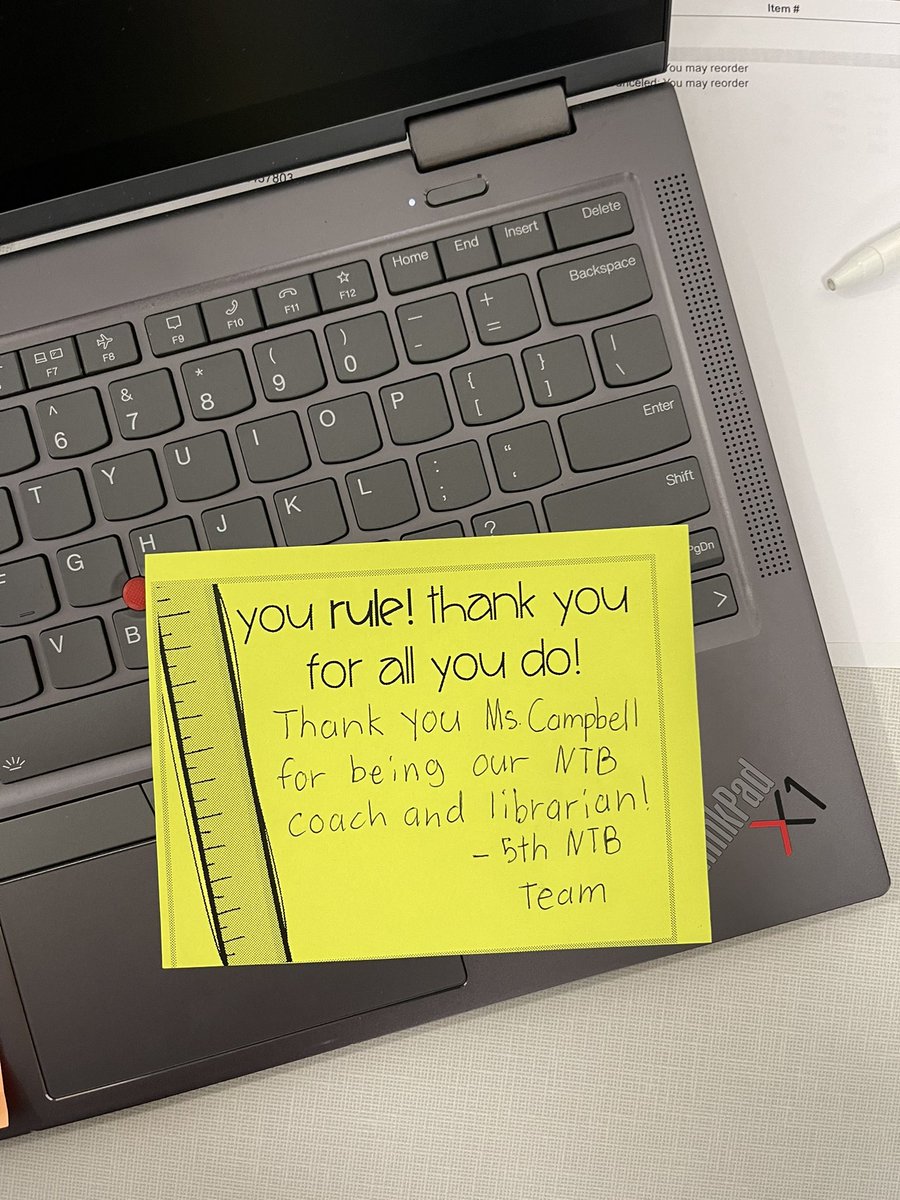 Item #
You may reorder
You may reorder
37803
Delete
Insert
End
Home
F12
F11
F10
F9
F8
F7
Backspace
+ =
_ -
) 0
( 9
* 8
& 7
^ 6
| \
} ]
{ [
P
O
I
U
Y
T
Enter
" '
: ;
L
K
J
H
G
F
Shift
?
B
V
PgDn
>
you rule! thank you
for all you do!
Thank you Ms. Campbell
for being our NTB
coach and librarian!
- 5th NTB
Team
ThinkPad X1